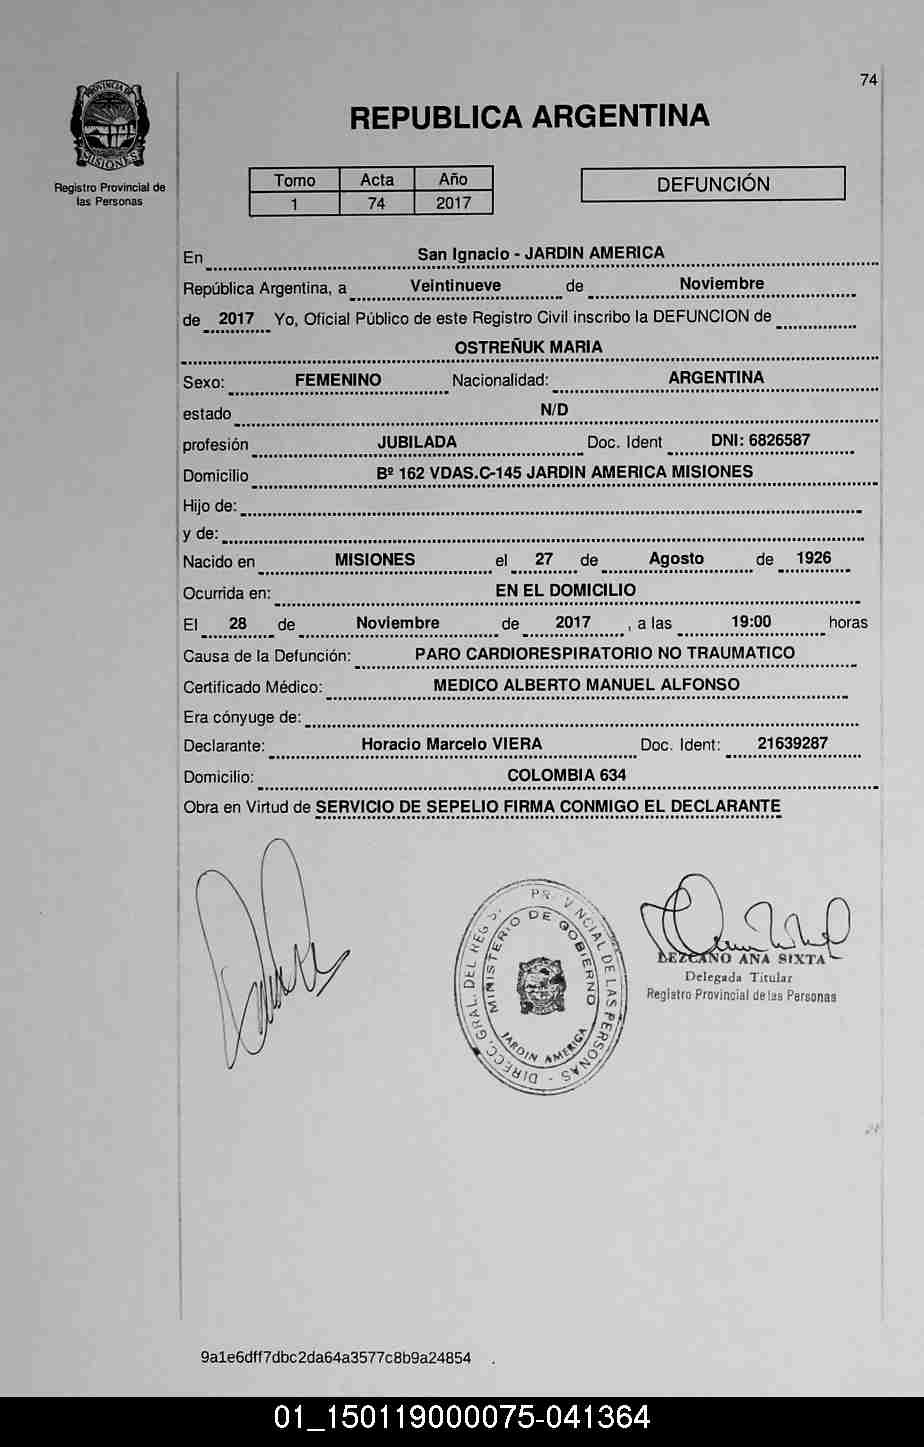 74
PROVINCIA DE
MISIONES
Registro Provincial de
las Personas
REPUBLICA ARGENTINA
Tomo Acta Año
1 74 2017
DEFUNCIÓN
En San Ignacio - JARDIN AMERICA
República Argentina, a Veintinueve de Noviembre
de 2017 Yo, Oficial Público de este Registro Civil inscribo la DEFUNCION de
OSTREÑUK MARIA
Sexo: FEMENINO Nacionalidad: ARGENTINA
estado N/D
profesión JUBILADA Doc. Ident DNI: 6826587
Domicilio Bº 162 VDAS.C-145 JARDIN AMERICA MISIONES
Hijo de:
y de:
Nacido en MISIONES el 27 de Agosto de 1926
Ocurrida en: EN EL DOMICILIO
El 28 de Noviembre de 2017 , a las 19:00 horas
Causa de la Defunción: PARO CARDIORESPIRATORIO NO TRAUMATICO
Certificado Médico: MEDICO ALBERTO MANUEL ALFONSO
Era cónyuge de:
Declarante: Horacio Marcelo VIERA Doc. Ident: 21639287
Domicilio: COLOMBIA 634
Obra en Virtud de SERVICIO DE SEPELIO FIRMA CONMIGO EL DECLARANTE
DIRECC. GRAL. DEL REG. PROVINCIAL DE LAS PERSONAS
MINISTERIO DE GOBIERNO
JARDIN AMERICA
LEZCANO ANA SIXTA
Delegada Titular
Registro Provincial de las Personas
9a1e6dff7dbc2da64a3577c8b9a24854
01_150119000075-041364